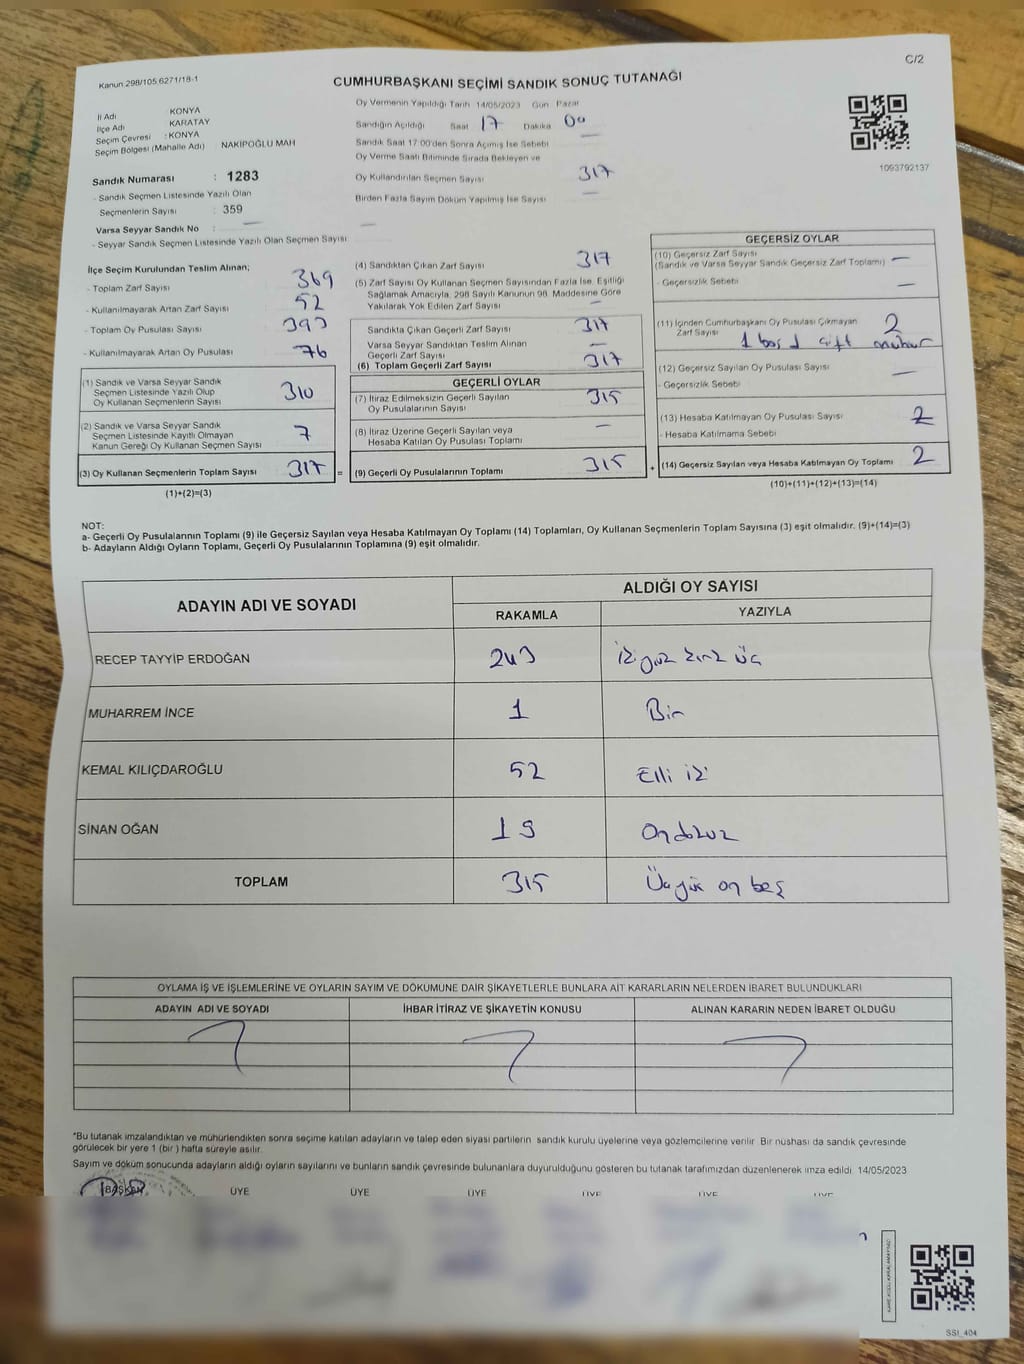 C/2
Kanun 298/105,6271/18-1
CUMHURBAŞKANI SEÇİMİ SANDIK SONUÇ TUTANAĞI
İl Adı : KONYA
İlçe Adı : KARATAY
Seçim Çevresi : KONYA
Seçim Bölgesi (Mahalle Adı) NAKİPOĞLU MAH
Sandık Numarası : 1283
- Sandık Seçmen Listesinde Yazılı Olan
Seçmenlerin Sayısı : 359
Varsa Seyyar Sandık No : —
- Seyyar Sandık Seçmen Listesinde Yazılı Olan Seçmen Sayısı : —
Oy Vermenin Yapıldığı Tarih 14/05/2023 Gün Pazar
Sandığın Açıldığı Saat 17 Dakika 00
Sandık Saat 17:00'den Sonra Açımış İse Sebebi —
Oy Verme Saati Bitiminde Sırada Bekleyen ve
Oy Kullandırılan Seçmen Sayısı 317
Birden Fazla Sayım Döküm Yapılmış İse Sayısı —
1093792137
İlçe Seçim Kurulundan Teslim Alınan;
- Toplam Zarf Sayısı 369
- Kullanılmayarak Artan Zarf Sayısı 52
- Toplam Oy Pusulası Sayısı 393
- Kullanılmayarak Artan Oy Pusulası 76
(1) Sandık ve Varsa Seyyar Sandık
Seçmen Listesinde Yazılı Olup
Oy Kullanan Seçmenlerin Sayısı 310
(2) Sandık ve Varsa Seyyar Sandık
Seçmen Listesinde Kayıtlı Olmayan
Kanun Gereği Oy Kullanan Seçmen Sayısı 7
(3) Oy Kullanan Seçmenlerin Toplam Sayısı 317 =
(1)+(2)=(3)
(4) Sandıktan Çıkan Zarf Sayısı 317
(5) Zarf Sayısı Oy Kullanan Seçmen Sayısından Fazla İse, Eşitliği
Sağlamak Amacıyla, 298 Sayılı Kanunun 98. Maddesine Göre
Yakılarak Yok Edilen Zarf Sayısı —
Sandıkta Çıkan Geçerli Zarf Sayısı 317
Varsa Seyyar Sandıktan Teslim Alınan
Geçerli Zarf Sayısı —
(6) Toplam Geçerli Zarf Sayısı 317
GEÇERLİ OYLAR
(7) İtiraz Edilmeksizin Geçerli Sayılan
Oy Pusulalarının Sayısı 315
(8) İtiraz Üzerine Geçerli Sayılan veya
Hesaba Katılan Oy Pusulası Toplamı —
(9) Geçerli Oy Pusulalarının Toplamı 315 +
GEÇERSİZ OYLAR
(10) Geçersiz Zarf Sayısı —
(Sandık ve Varsa Seyyar Sandık Geçersiz Zarf Toplamı)
- Geçersizlik Sebebi —
(11) İçinden Cumhurbaşkanı Oy Pusulası Çıkmayan
Zarf Sayısı 2
1 boş 1 çift mühür
(12) Geçersiz Sayılan Oy Pusulası Sayısı —
- Geçersizlik Sebebi
(13) Hesaba Katılmayan Oy Pusulası Sayısı 2
- Hesaba Katılmama Sebebi
(14) Geçersiz Sayılan veya Hesaba Katılmayan Oy Toplamı 2
(10)+(11)+(12)+(13)=(14)
NOT:
a- Geçerli Oy Pusulalarının Toplamı (9) ile Geçersiz Sayılan veya Hesaba Katılmayan Oy Toplamı (14) Toplamları, Oy Kullanan Seçmenlerin Toplam Sayısına (3) eşit olmalıdır. (9)+(14)=(3)
b- Adayların Aldığı Oyların Toplamı, Geçerli Oy Pusulalarının Toplamına (9) eşit olmalıdır.
ADAYIN ADI VE SOYADI ALDIĞI OY SAYISI
RAKAMLA YAZIYLA
RECEP TAYYİP ERDOĞAN 243 ikiyüz kırk üç
MUHARREM İNCE 1 Bir
KEMAL KILIÇDAROĞLU 52 Elli iki
SİNAN OĞAN 19 On dokuz
TOPLAM 315 Üçyüz on beş
OYLAMA İŞ VE İŞLEMLERİNE VE OYLARIN SAYIM VE DÖKÜMÜNE DAİR ŞİKAYETLERLE BUNLARA AİT KARARLARIN NELERDEN İBARET BULUNDUKLARI
ADAYIN ADI VE SOYADI İHBAR İTİRAZ VE ŞİKAYETİN KONUSU ALINAN KARARIN NEDEN İBARET OLDUĞU
*Bu tutanak imzalandıktan ve mühürlendikten sonra seçime katılan adayların ve talep eden siyasi partilerin sandık kurulu üyelerine veya gözlemcilerine verilir. Bir nüshası da sandık çevresinde
görülecek bir yere 1 (bir ) hafta süreyle asılır.
Sayım ve döküm sonucunda adayların aldığı oyların sayılarını ve bunların sandık çevresinde bulunanlara duyurulduğunu gösteren bu tutanak tarafımızdan düzenlenerek imza edildi 14/05/2023
BAŞKAN ÜYE ÜYE ÜYE ÜYE ÜYE ÜYE
SSI_404